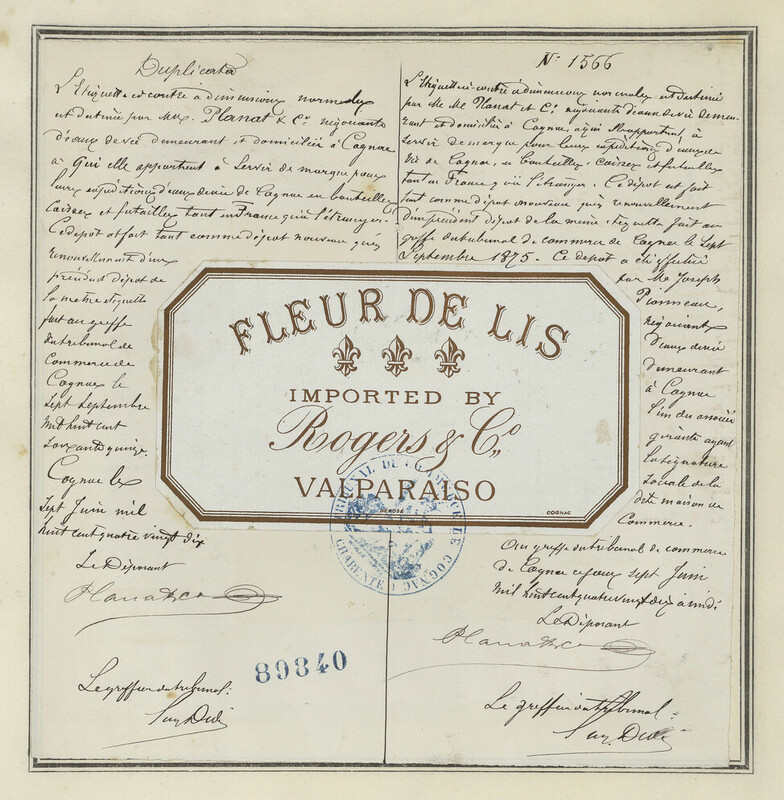 Duplicata
L'étiquette ci contre à dimensions normales
est destinée par MM. Planat & Cie négociants
d'eaux de vie demeurant et domiciliés à Cognac
à qui elle appartient à servir de marque pour
leurs expéditions d'eaux de vie de Cognac en bouteilles
caisses et futailles tant en France qu'à l'étranger.
Ce dépôt est fait tant comme dépôt nouveau que
renouvellement d'un
précédent dépôt de
la même étiquette
fait au greffe
du tribunal de
Commerce de
Cognac le
sept septembre
mil huit cent
soixante quinze.
Cognac le
sept Juin mil
huit cent quatre vingt dix
Le Déposant
Planat & Co
Le greffier du tribunal:
N° 1566
L'étiquette ci contre à dimensions normales est destinée
par MM. Planat et Cie négociants d'eaux de vie demeu-
rant et domiciliés à Cognac, à qui elle appartient, à
servir de marque pour leurs expéditions d'eaux de
vie de Cognac, en bouteilles, caisses et futailles
tant en France qu'à l'étranger. Ce dépôt est fait
tant comme dépôt nouveau que renouvellement
d'un précédent dépôt de la même étiquette fait au
greffe du tribunal de commerce de Cognac le sept
Septembre 1875. Ce dépôt a été effectué
par Mr Joseph
négociant
d'eaux de vie
demeurant
à Cognac
l'un des associés
gérants ayant
la signature
sociale de la
dite maison de
Commerce.
Au greffe du tribunal de commerce
de Cognac ce jour sept Juin
mil huit cent quatre vingt dix à midi
Le Déposant
Planat & Co
Le greffier du tribunal:
FLEUR DE LIS
IMPORTED BY
Rogers & Co.
VALPARAISO
COGNAC
TRIBUNAL DE COMMERCE DE COGNAC
(CHARENTE)
89840